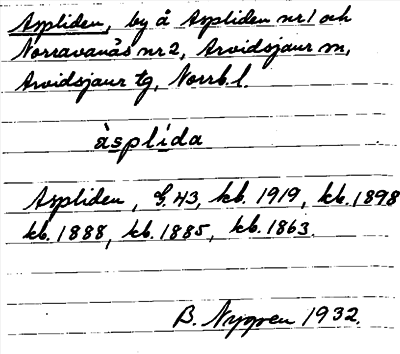 Aspliden, by å Aspliden nr 1 och
Norravanäs nr 2, Arvidsjaur sn,
Arvidsjaur tg, Norrb. l.
àsplída
Aspliden, G. 43, kb. 1919, kb. 1898
kb. 1888, kb. 1885, kb. 1863.
B. Nygren 1932.